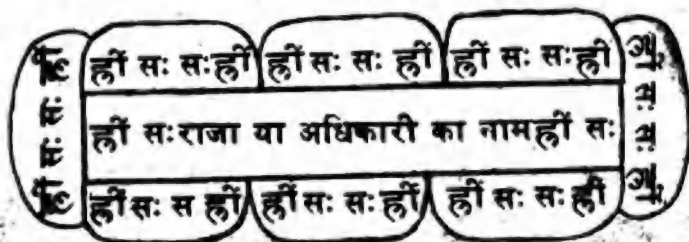 ह्रीं सः सः ह्रीं ह्रीं सः सः ह्रीं ह्रीं सः सः ह्रीं
ह्रीं सः सः ह्रीं
ह्रीं सः राजा या अधिकारी का नाम ह्रीं सः
सः सः
ह्रीं सः स ह्रीं ह्रीं सः सः ह्रीं ह्रीं सः सः ह्रीं